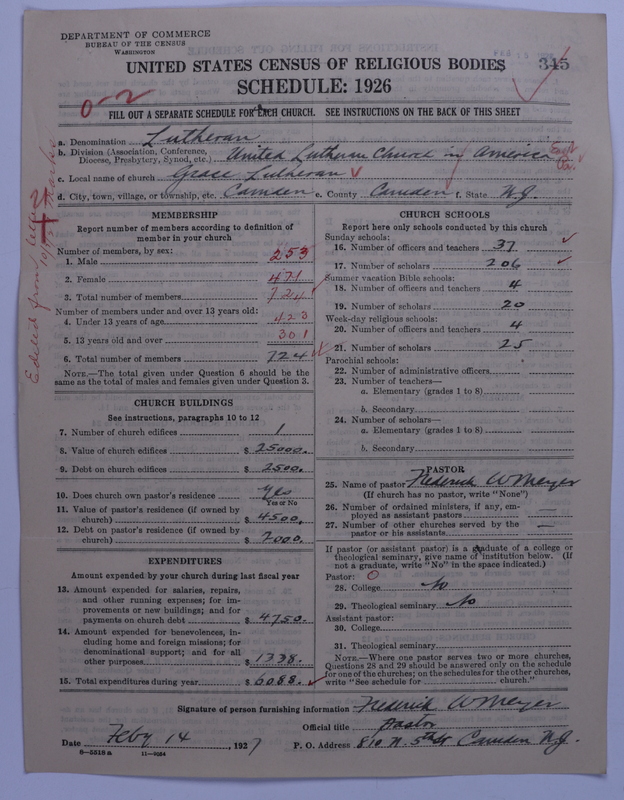 DEPARTMENT OF COMMERCE
BUREAU OF THE CENSUS
WASHINGTON
UNITED STATES CENSUS OF RELIGIOUS BODIES
345
SCHEDULE: 1926
0-2
FILL OUT A SEPARATE SCHEDULE FOR EACH CHURCH. SEE INSTRUCTIONS ON THE BACK OF THIS SHEET
a. Denomination Lutheran
b. Division (Association, Conference, Diocese, Presbytery, Synod, etc.) United Lutheran Church in America
c. Local name of church Grace Lutheran
d. City, town, village, or township, etc. Camden e. County Camden f. State N.J.
Edited from letter
MEMBERSHIP
Report number of members according to definition of
member in your church
Number of members, by sex:
1. Male 253
2. Female 471
3. Total number of members 724
Number of members under and over 13 years old:
4. Under 13 years of age 423
5. 13 years old and over 301
6. Total number of members 724
NOTE.—The total given under Question 6 should be the
same as the total of males and females given under Question 3.
CHURCH BUILDINGS
See instructions, paragraphs 10 to 12
7. Number of church edifices 1
8. Value of church edifices $ 25000.
9. Debt on church edifices $ 2500.
10. Does church own pastor's residence Yes
Yes or No
11. Value of pastor's residence (if owned by
church) $ 4500.
12. Debt on pastor's residence (if owned by
church) $ 2000.
EXPENDITURES
Amount expended by your church during last fiscal year
13. Amount expended for salaries, repairs,
and other running expenses; for im-
provements or new buildings; and for
payments on church debt $ 4750.
14. Amount expended for benevolences, in-
cluding home and foreign missions; for
denominational support; and for all
other purposes $ 1338.
15. Total expenditures during year $ 6088.
CHURCH SCHOOLS
Report here only schools conducted by this church
Sunday schools:
16. Number of officers and teachers 37
17. Number of scholars 206
Summer vacation Bible schools:
18. Number of officers and teachers 4
19. Number of scholars 20
Week-day religious schools:
20. Number of officers and teachers 4
21. Number of scholars 25
Parochial schools:
22. Number of administrative officers
23. Number of teachers—
a. Elementary (grades 1 to 8)
b. Secondary
24. Number of scholars—
a. Elementary (grades 1 to 8)
b. Secondary
PASTOR
25. Name of pastor Frederick W Meyer
(If church has no pastor, write "None")
26. Number of ordained ministers, if any, em-
ployed as assistant pastors —
27. Number of other churches served by the
pastor or his assistants —
If pastor (or assistant pastor) is a graduate of a college or
theological seminary, give name of institution below. (If
not a graduate, write "No" in the space indicated.)
Pastor: O
28. College No
29. Theological seminary No
Assistant pastor:
30. College
31. Theological seminary
NOTE.—Where one pastor serves two or more churches,
Questions 28 and 29 should be answered only on the schedule
for one of the churches; on the schedules for the other churches,
write "See schedule for church."
Signature of person furnishing information Frederick W Meyer
Official title Pastor
Date Feby 14, 1927 P. O. Address 810 N. 5th St Camden N.J.
8—5518a 11—9034